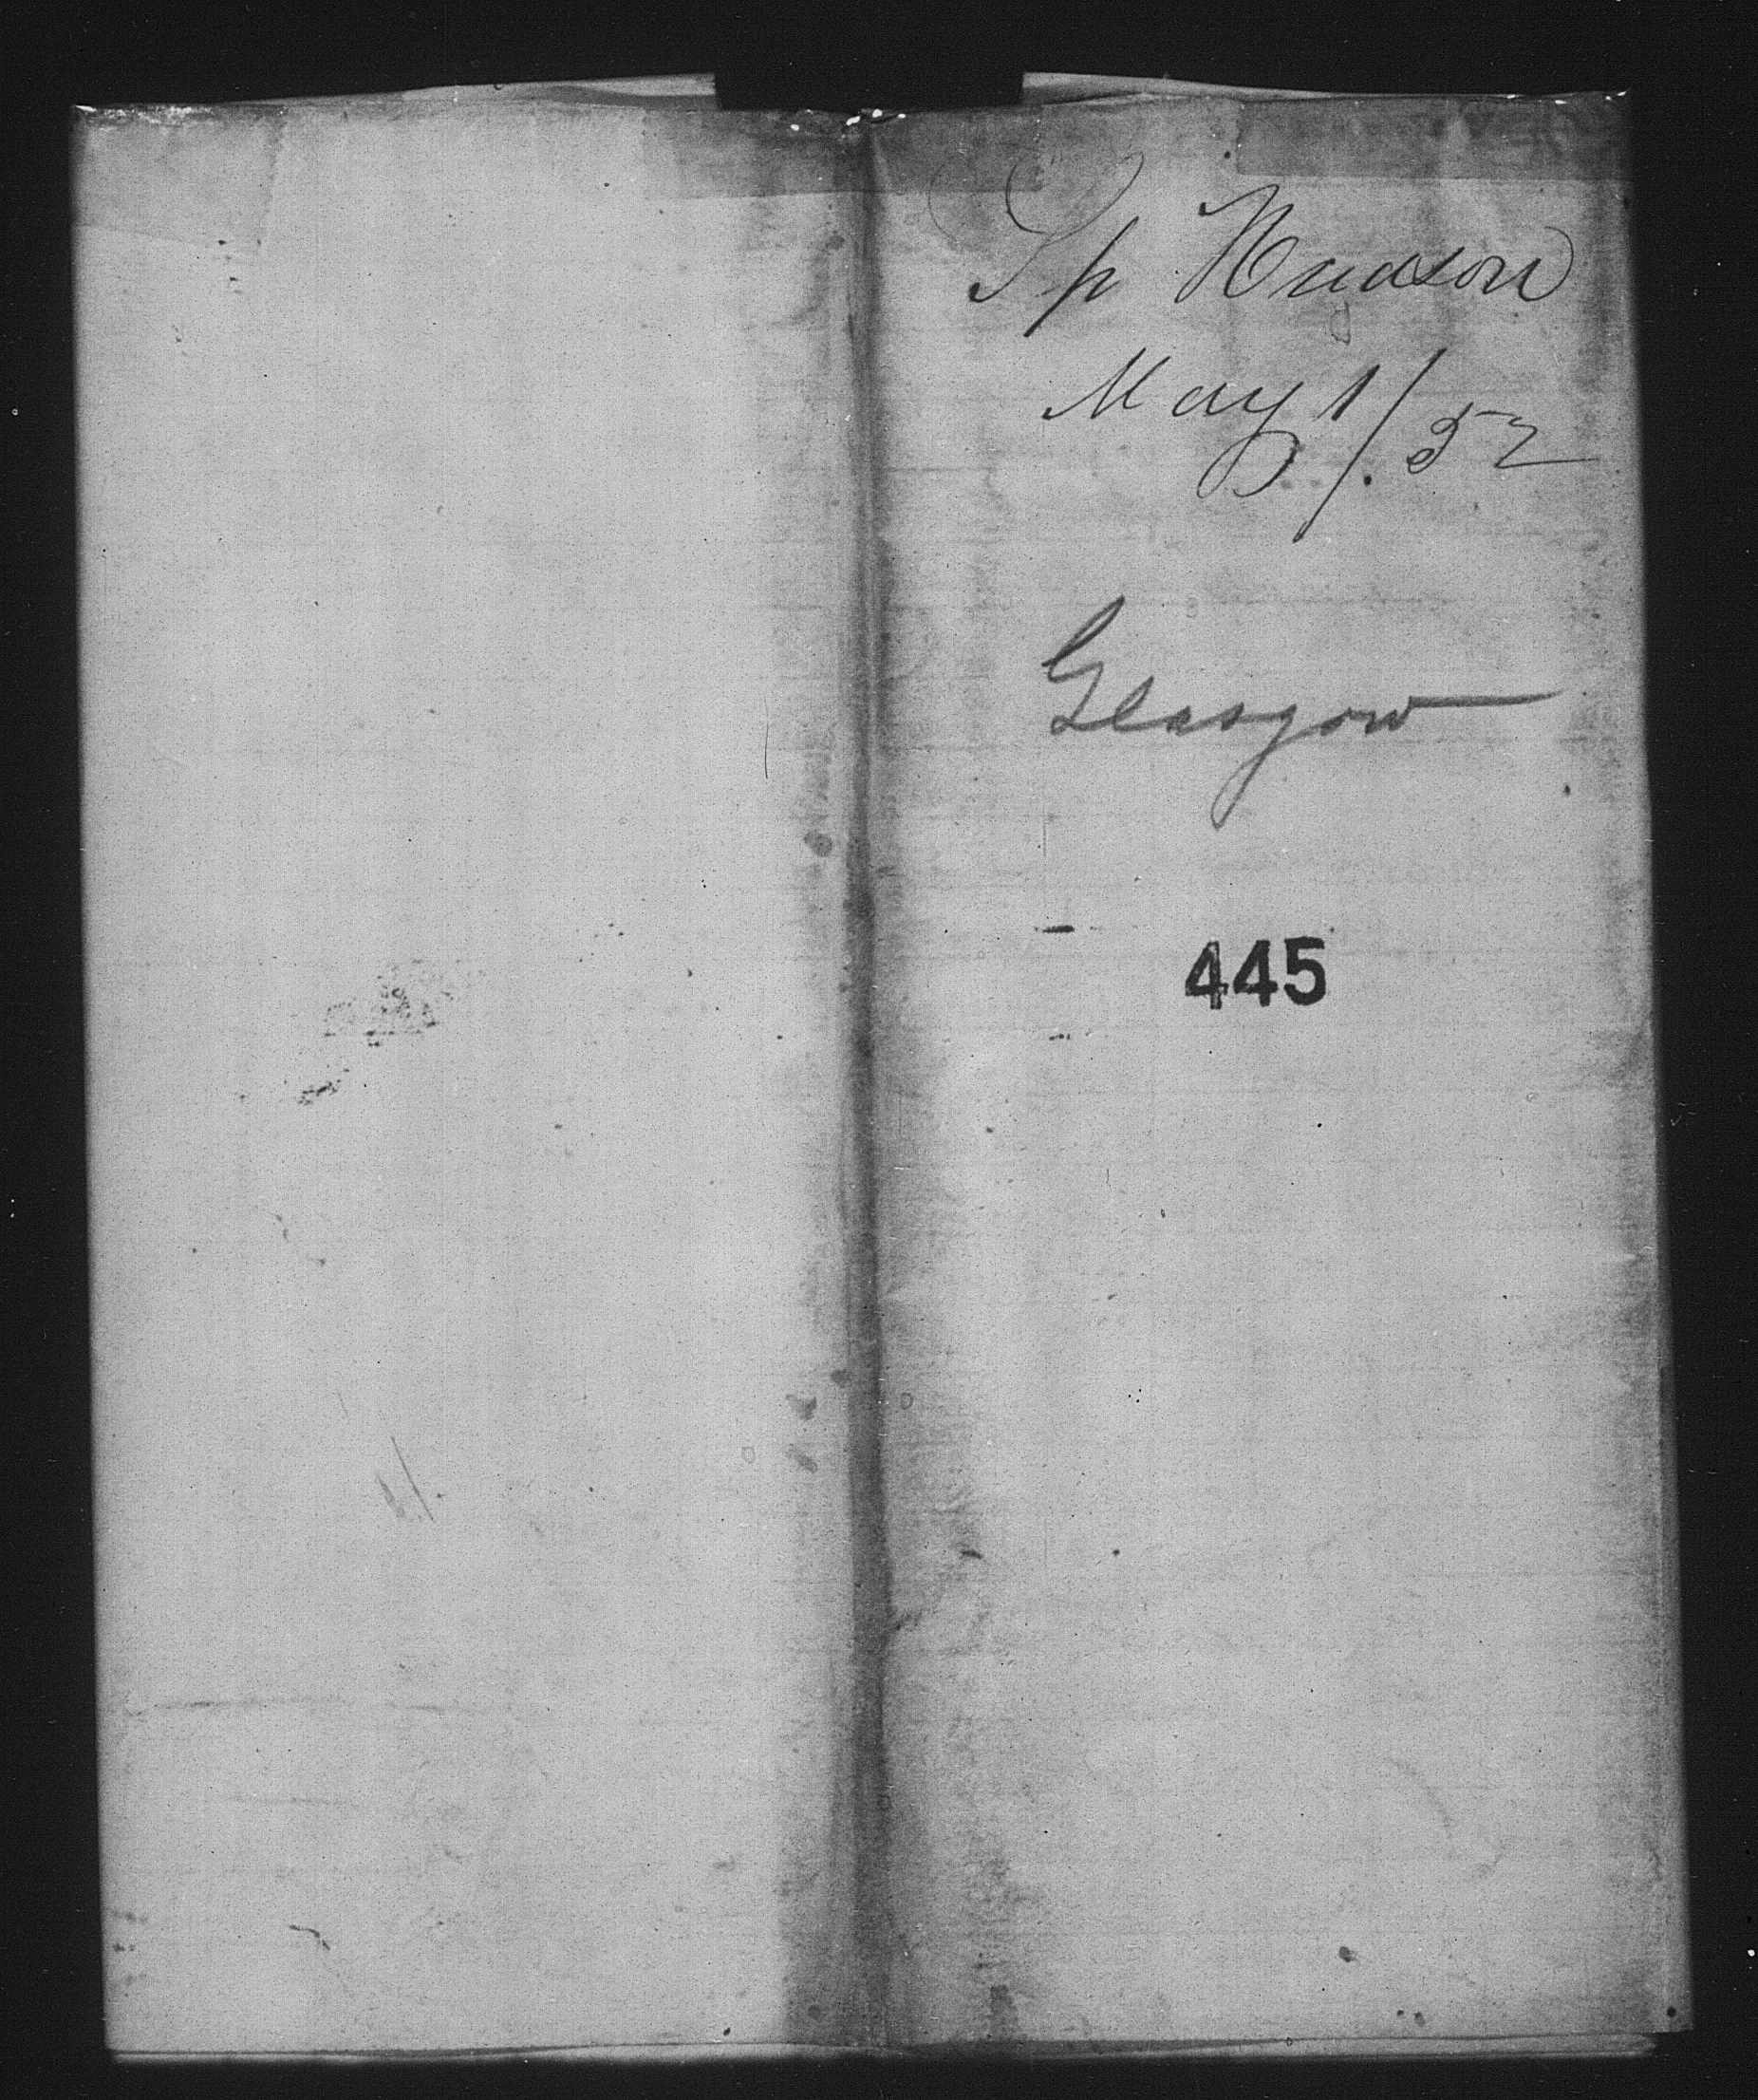 Sp Hudson
May 1/52
Glasgow
445